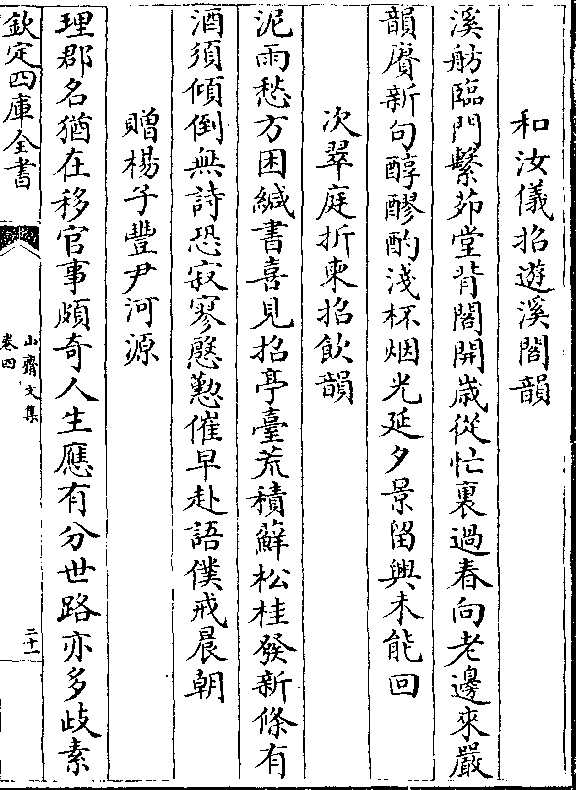 和汝儀招遊溪閣韻
溪舫臨門繫茆堂背閣開歳從忙裏過春向老邊來嚴
韻賡新句醇醪酌淺杯烟光延夕景留興未能回
次翠庭折柬招飲韻
泥雨愁方困緘書喜見招亭臺荒積蘚松桂發新條有
酒須傾倒無詩恐寂寥慇懃催早赴語僕戒晨朝
贈楊子豐尹河源
理郡名猶在移官事頗奇人生應有分世路亦多歧素
欽定四庫全書
山齋文集
卷四
二十一